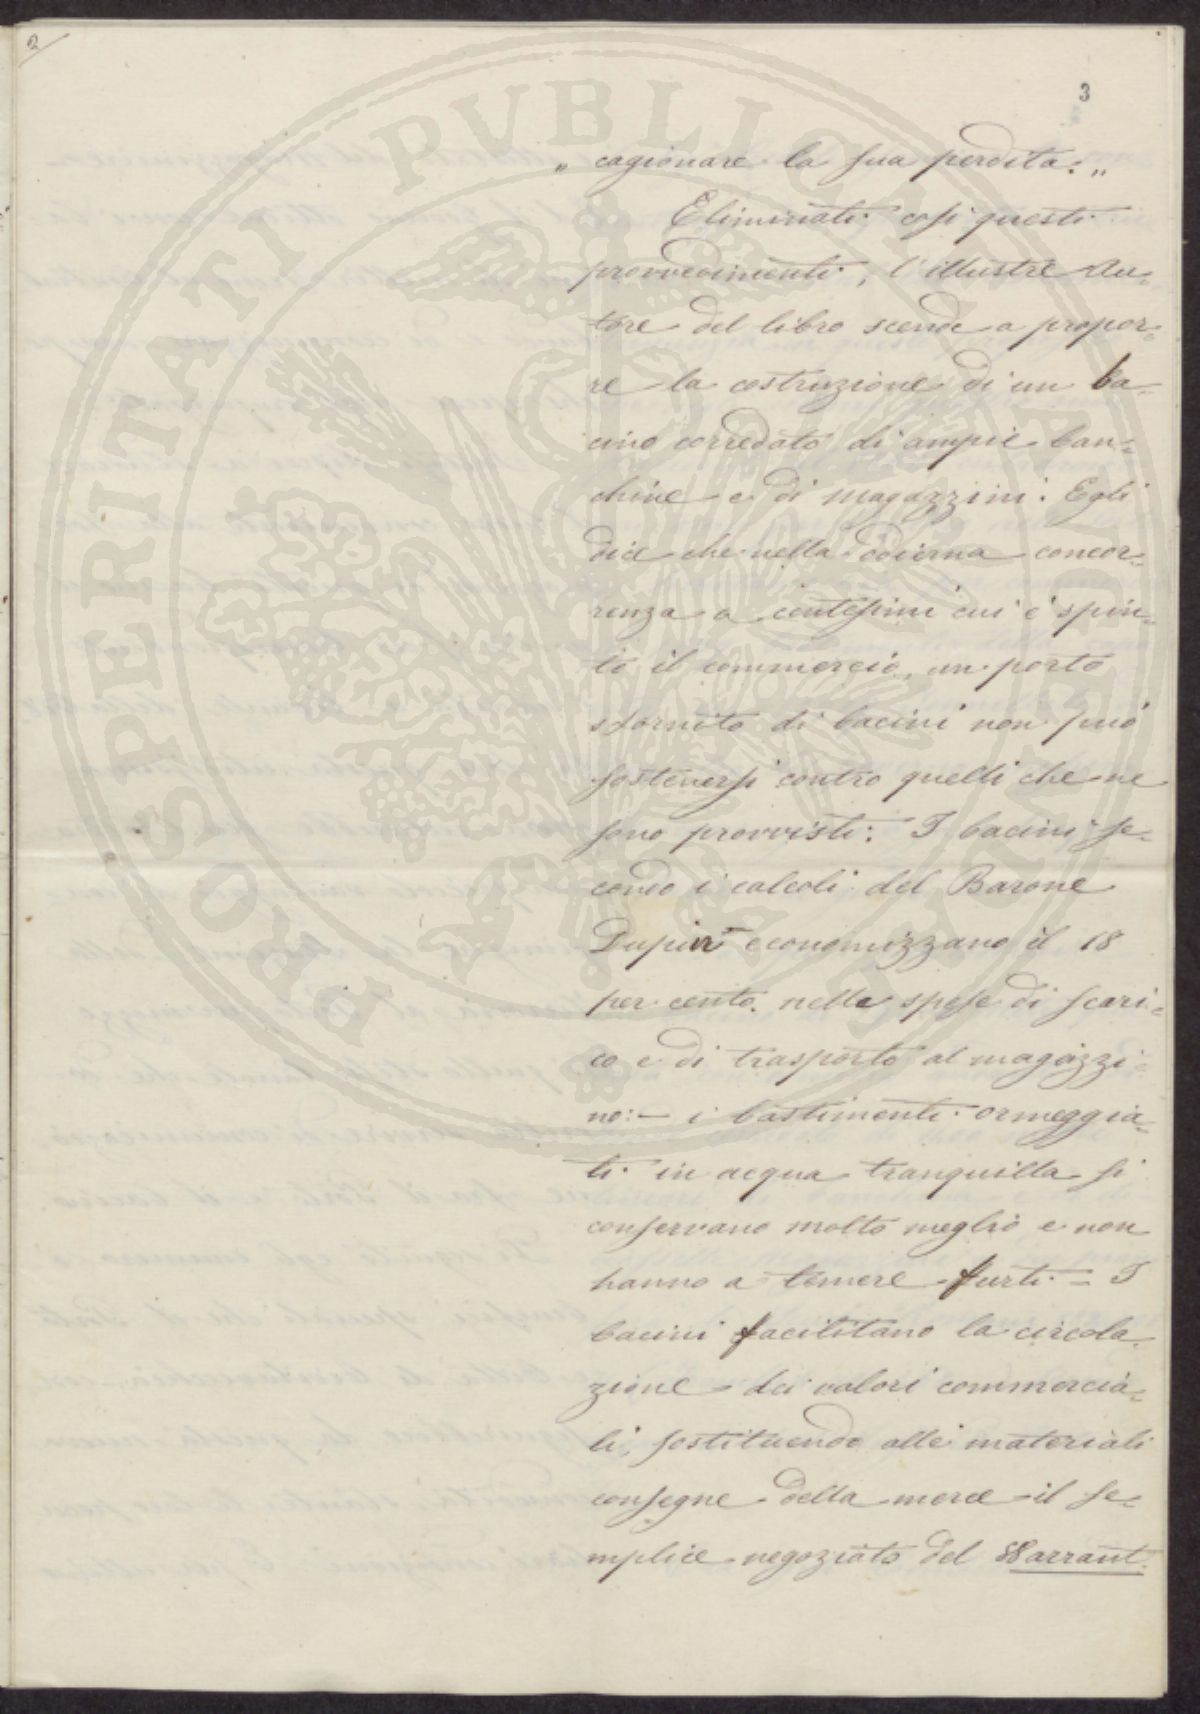 2
3
„ cagionare la sua perdita. „
Eliminati così questi
provvedimenti, l'illustre Au-
tore del libro scende a propor-
re la costruzione di un ba-
cino corredato di ampie ban-
chine e di magazzini. Egli
dice che nella odierna concor-
renza a centesimi cui è spin-
to il commercio, un porto
sfornito di bacini non può
sostenersi contro quelli che ne
sono provvisti: I bacini se-
condo i calcoli del Barone
Dupin economizzano il 18
per cento nelle spese di scari-
co e di trasporto al magazzi-
no: — i bastimenti ormeggia-
ti in acqua tranquilla si
conservano molto meglio e non
hanno a temere furti = I
bacini facilitano la circola-
zione dei valori commercia-
li, sostituendo alle materiali
consegne della merce il se-
mplice negoziato del Warrant.
PROSPERITATI PVBLICAE